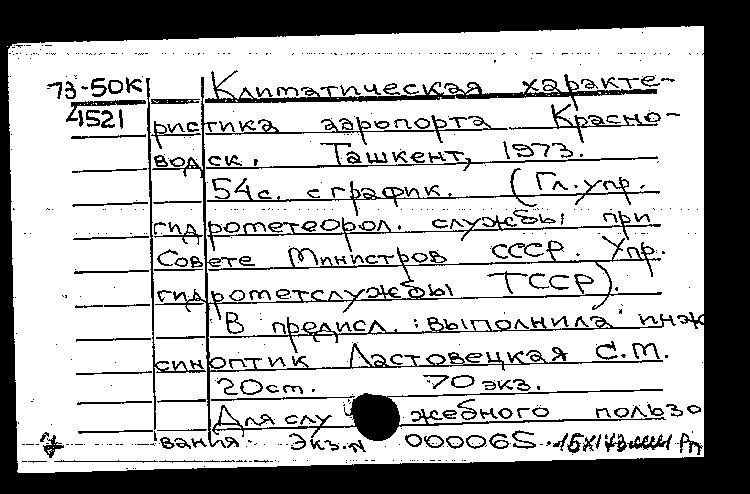 73-50К Климатическая характе-
4521 ристика аэропорта Красно-
водск. Ташкент, 1973.
54с. с график. (Гл. упр.
гидрометеорол. службы при
Совете Министров СССР. Упр.
гидрометслужбы ТССР).
В предисл.: выполнила инж
синоптик Ластовецкая С.М.
20см. 70 экз.
Для служебного пользо
вания Экз.N 000065